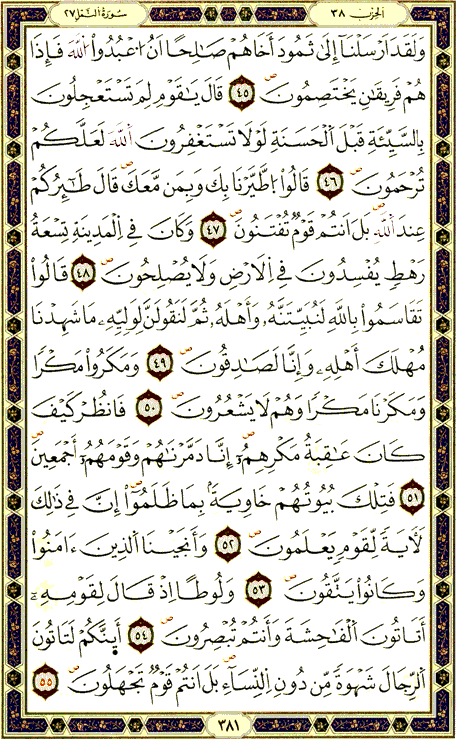 الحزب ٣٨
سُورَةُ النَّمْل ٢٧
وَلَقَدَ اَرْسَلْنَآ إِلَىٰ ثَمُودَ أَخَاهُمْ صَـٰلِحًا اَنُ اُ۟عْبُدُواْ اُ۬للَّهَ فَإِذَا
هُمْ فَرِيقَـٰنِ يَخْتَصِمُونَ ٤٥ قَالَ يَـٰقَوْمِ لِمَ تَسْتَعْجِلُونَ
بِالسَّيِّئَةِ قَبْلَ اَ۬لْحَسَنَةِ لَوْلَا تَسْتَغْفِرُونَ اَ۬للَّهَ لَعَلَّكُمْ
تُرْحَمُونَ ٤٦ قَالُواْ اُ۪طَّيَّرْنَا بِكَ وَبِمَن مَّعَكَ قَالَ طَـٰٓئِرُكُمْ
عِندَ اَ۬للَّهِ بَلَ اَنتُمْ قَوْمٌ تُفْتَنُونَ ٤٧ وَكَانَ فِے اِ۬لْمَدِينَةِ تِسْعَةُ
رَهْطٍ يُفْسِدُونَ فِے اِ۬لَارْضِ وَلَا يُصْلِحُونَ ٤٨ قَالُواْ
تَقَاسَمُواْ بِاللَّهِ لَنُبَيِّتَنَّهُۥ وَأَهْلَهُۥ ثُمَّ لَنَقُولَنَّ لِوَلِيِّهِۦ مَا شَهِدْنَا
مُهْلَكَ أَهْلِهِۦ وَإِنَّا لَصَـٰدِقُونَ ٤٩ وَمَكَرُواْ مَكْرًا
وَمَكَرْنَا مَكْرًا وَهُمْ لَا يَشْعُرُونَ ٥٠ فَانظُرْ كَيْفَ
كَانَ عَـٰقِبَةُ مَكْرِهِمُۥٓ إِنَّا دَمَّرْنَـٰهُمْ وَقَوْمَهُمُۥٓ أَجْمَعِينَ
٥١ فَتِلْكَ بُيُوتُهُمْ خَاوِيَةً بِمَا ظَلَمُوٓاْ إِنَّ فِے ذَٰلِكَ
لَأٓيَةً لِّقَوْمٍ يَعْلَمُونَ ٥٢ وَأَنجَيْنَا اَ۬لذِينَ ءَامَنُواْ
وَكَانُواْ يَتَّقُونَ ٥٣ وَلُوطًا اِذْ قَالَ لِقَوْمِهِۦٓ
أَتَاتُونَ اَ۬لْفَـٰحِشَةَ وَأَنتُمْ تُبْصِرُونَ ٥٤ أَى۪نَّكُمْ لَتَاتُونَ
اَ۬لرِّجَالَ شَهْوَةً مِّن دُونِ اِ۬لنِّسَآءِ بَلَ اَنتُمْ قَوْمٌ تَجْهَلُونَ ٥٥
٣٨١